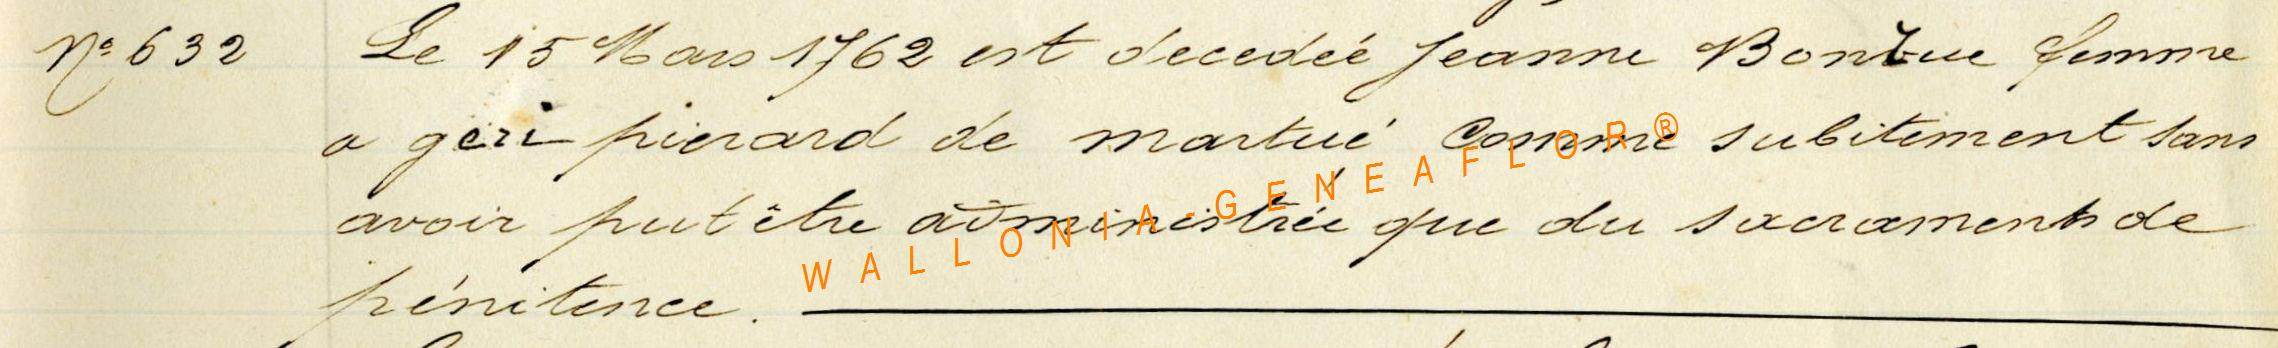 No 632 Le 15 Mars 1762 est decedeé Jeanne Bontue femme
a geri pierard de martué Comme subitement sans
avoir put être administrée que du sacrament de
pénitence.
WALLONIA-GENEAFLOR®